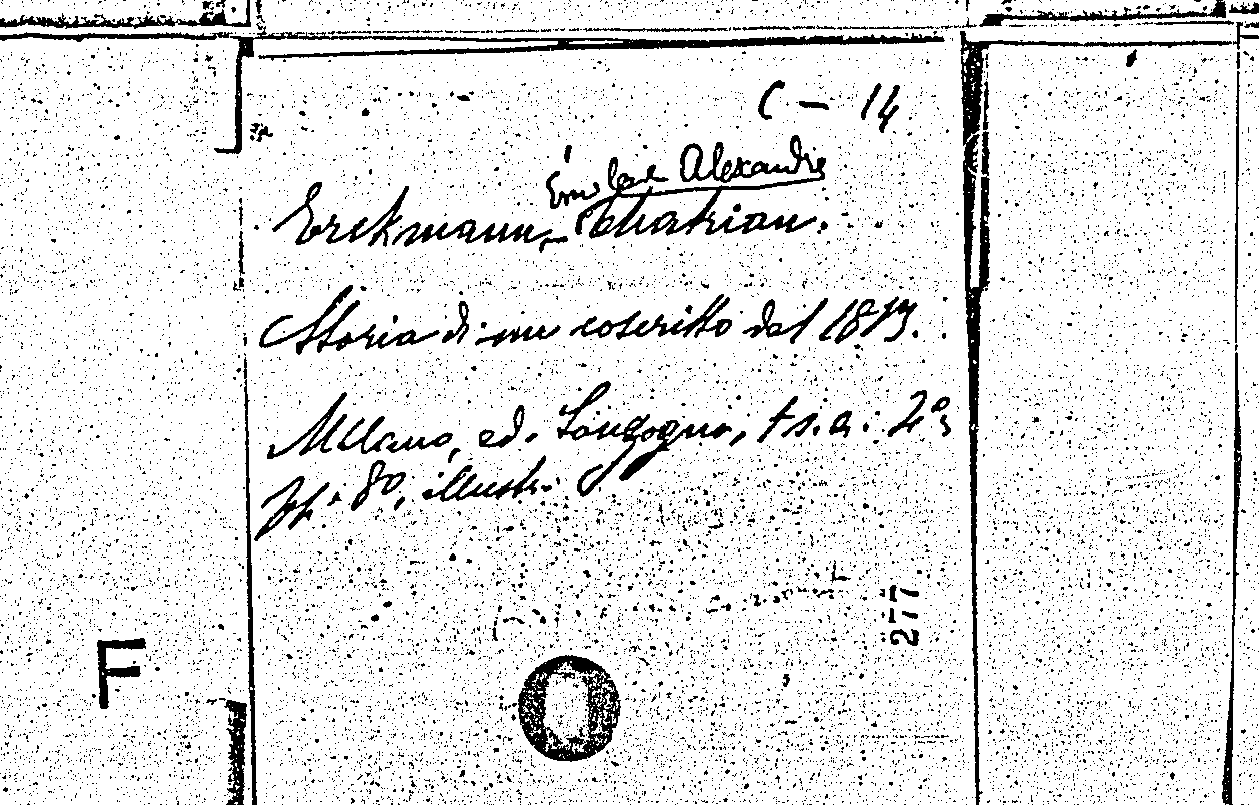 C - 14
Émile Alexandre
Erckmann-Chatrian.
Storia di un coscritto del 1813.
Milano, ed. Sonzogno, s.a. 2º,
pp. 80, illustr.
277
F